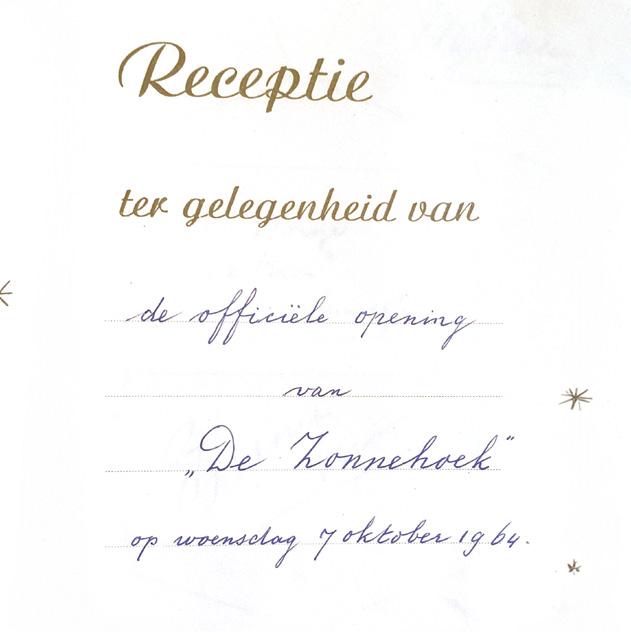 Receptie
ter gelegenheid van
de officiële opening
van
„De Zonnehoek"
op woensdag 7 oktober 1964.